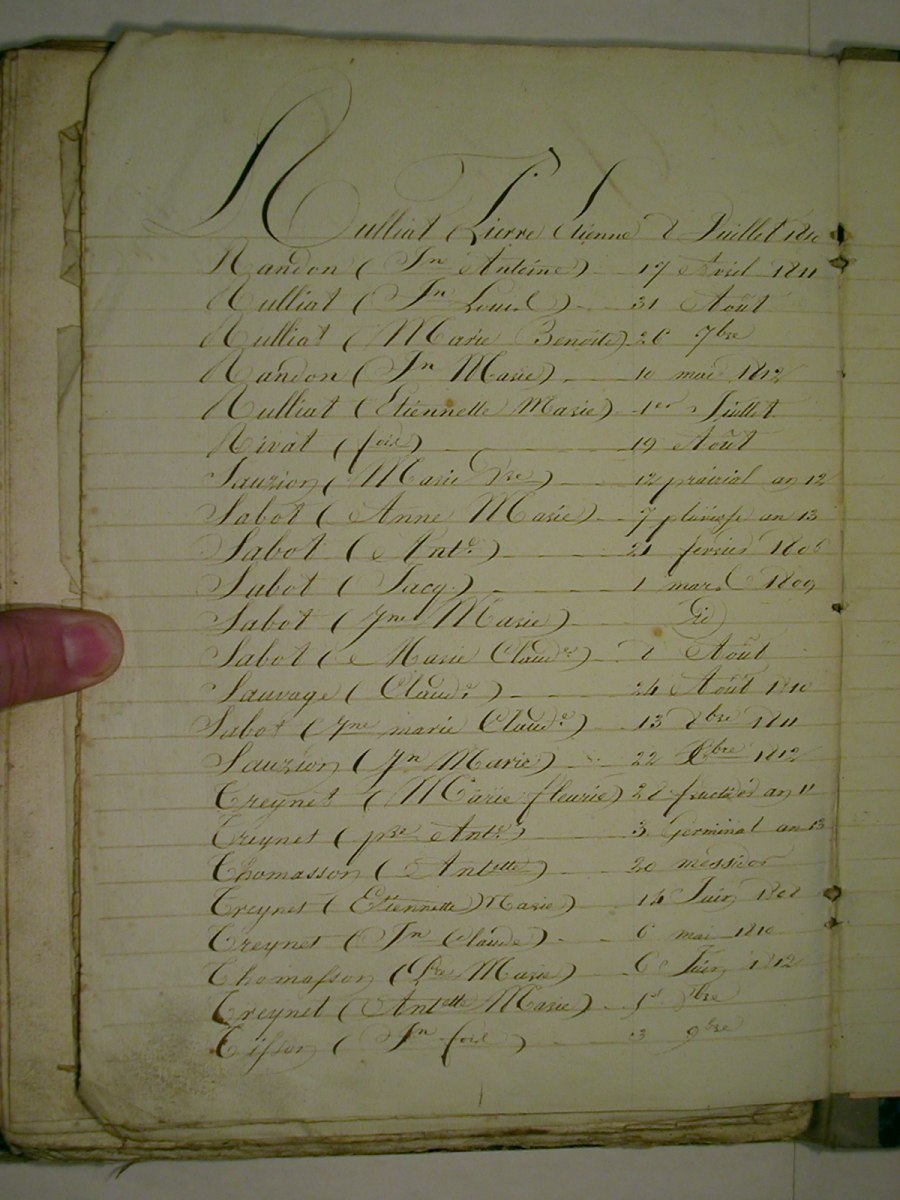 Rulliat Pierre Etienne 8 Juillet 1810
Randon (Jn Antoine) 17 Avril 1811
Rulliat (Jn Louis) 31 Août
Rulliat (Marie Benoite) 26 7bre
Randon (Jn Marie) 10 mai 1812
Rulliat (Etiennette Marie) 1er Juillet
Rivat (fois) 19 Août
Sauzion (Marie) 12 prairial an 12
Sabot (Anne Marie) 7 an 13
Sabot (Ante) 21 février
Sabot (Jacq.) 1 mars 1809
Sabot (Jne Marie)
Sabot (Marie Claude) 8 Août
Sauvage (Claude) 24 Août 1810
Sabot (Jne marie Claude) 13 8bre 1811
Sauzion (Jn Marie) 22 1812
Treynet (Marie fleurie) 28 fructidor an 11
Treynet (pre Ante) 3 Germinal an 13
Thomasson (Antette) 20 messidor
Treynet (Etiennette Marie) 14 Juin 1808
Treynet (Jn Claude) 6 mai 1810
Thomasson (Marie) 6 Juin 1812
Treynet (Antette Marie)
(Jn fois) 9bre